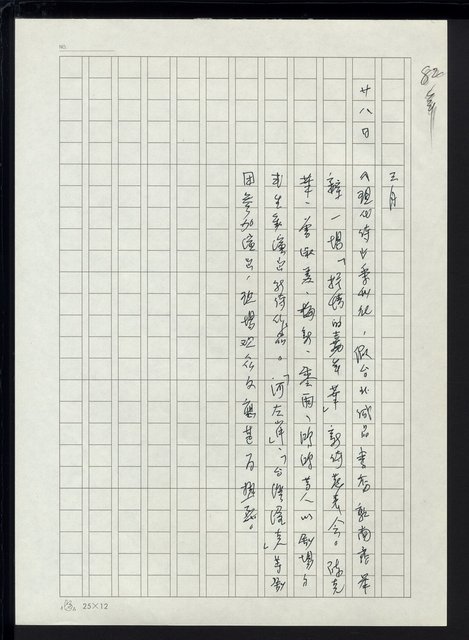 82年
NO.
三月
廿八日
《現代詩》季刊社,假台北誠品書店敦南店舉
辦一場「抒情的嘉年華」新詩發表會。陳克
華、曾淑美、梅新、零雨、鴻鴻等人以劇場方
式生動演出新詩作品。「河左岸」、「台灣渥克」等劇
團參加演出,現場觀眾反應甚為熱烈。
25×12